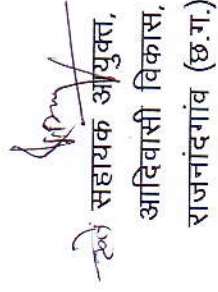 सहायक आयुक्त,
आदिवासी विकास,
राजनांदगांव (छ.ग.)